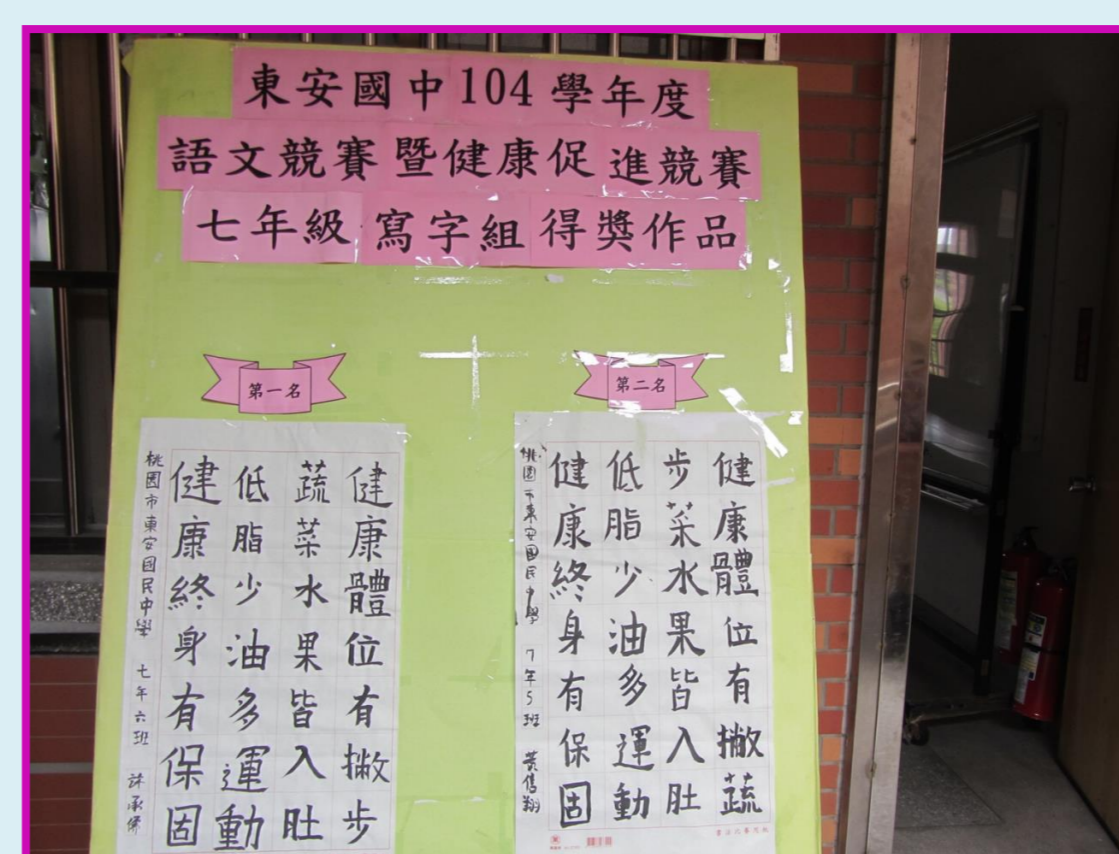 東安國中104學年度
語文競賽暨健康促進競賽
七年級寫字組得獎作品
第一名
健康體位有撇步
蔬菜水果皆入肚
低脂少油多運動
健康終身有保固
桃園市東安國民中學 七年六班 許承
第二名
健康體位有撇蔬
步菜水果皆入肚
低脂少油多運動
健康終身有保固
桃園市東安國民中學 7年5班 黃 翔